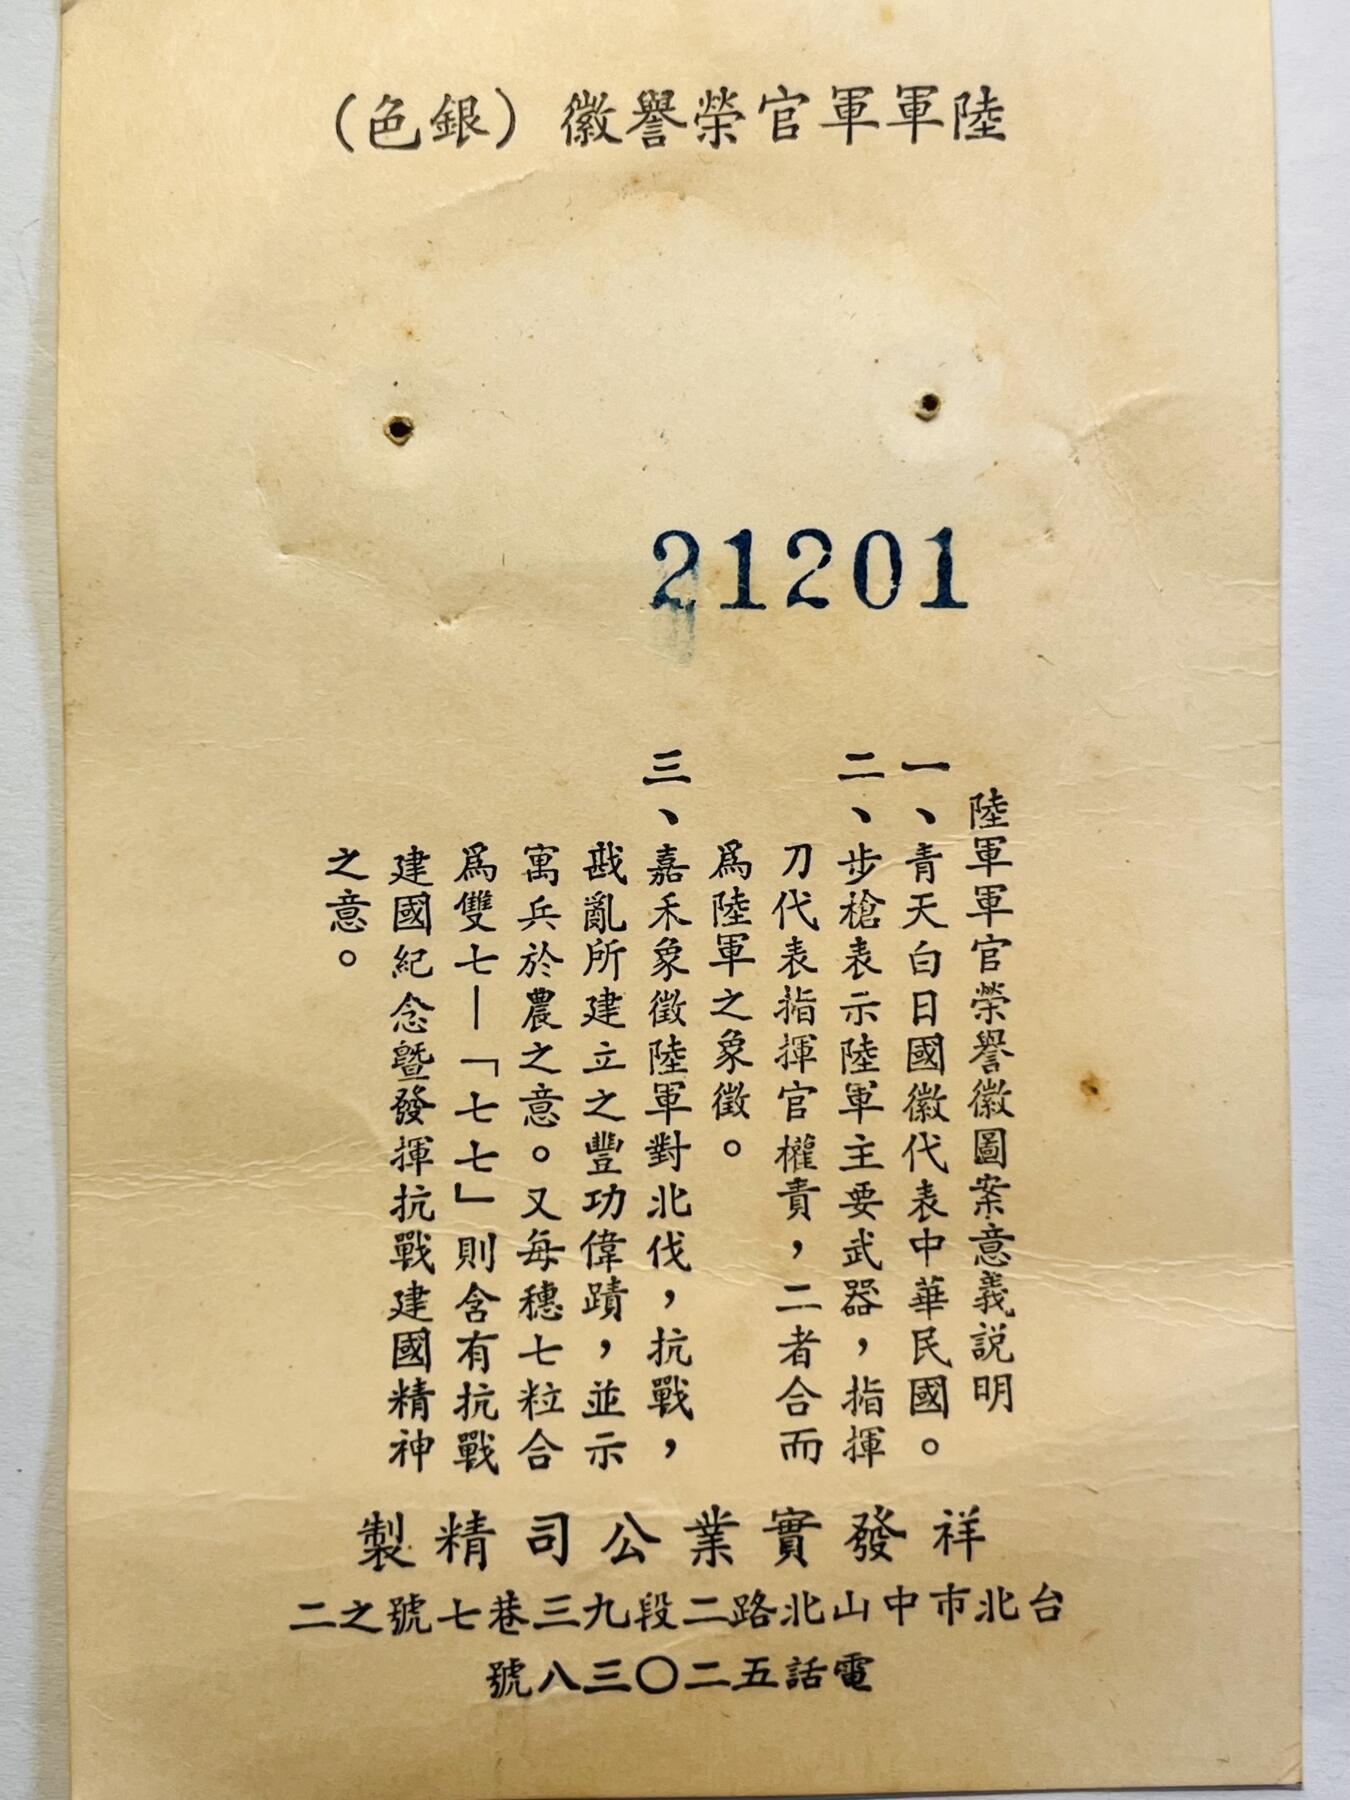 陸軍軍官榮譽徽（銀色）
21201
陸軍軍官榮譽徽圖案意義説明
一、青天白日國徽代表中華民國。
二、步槍表示陸軍主要武器，指揮
刀代表指揮官權責，二者合而
爲陸軍之象徵。
三、嘉禾象徵陸軍對北伐，抗戰，
戡亂所建立之豐功偉蹟，並示
寓兵於農之意。又每穗七粒合
爲雙七—「七七」則含有抗戰
建國紀念暨發揮抗戰建國精神
之意。
祥發實業公司精製
台北市中山北路二段九三巷七號之二
電話五二〇三八號